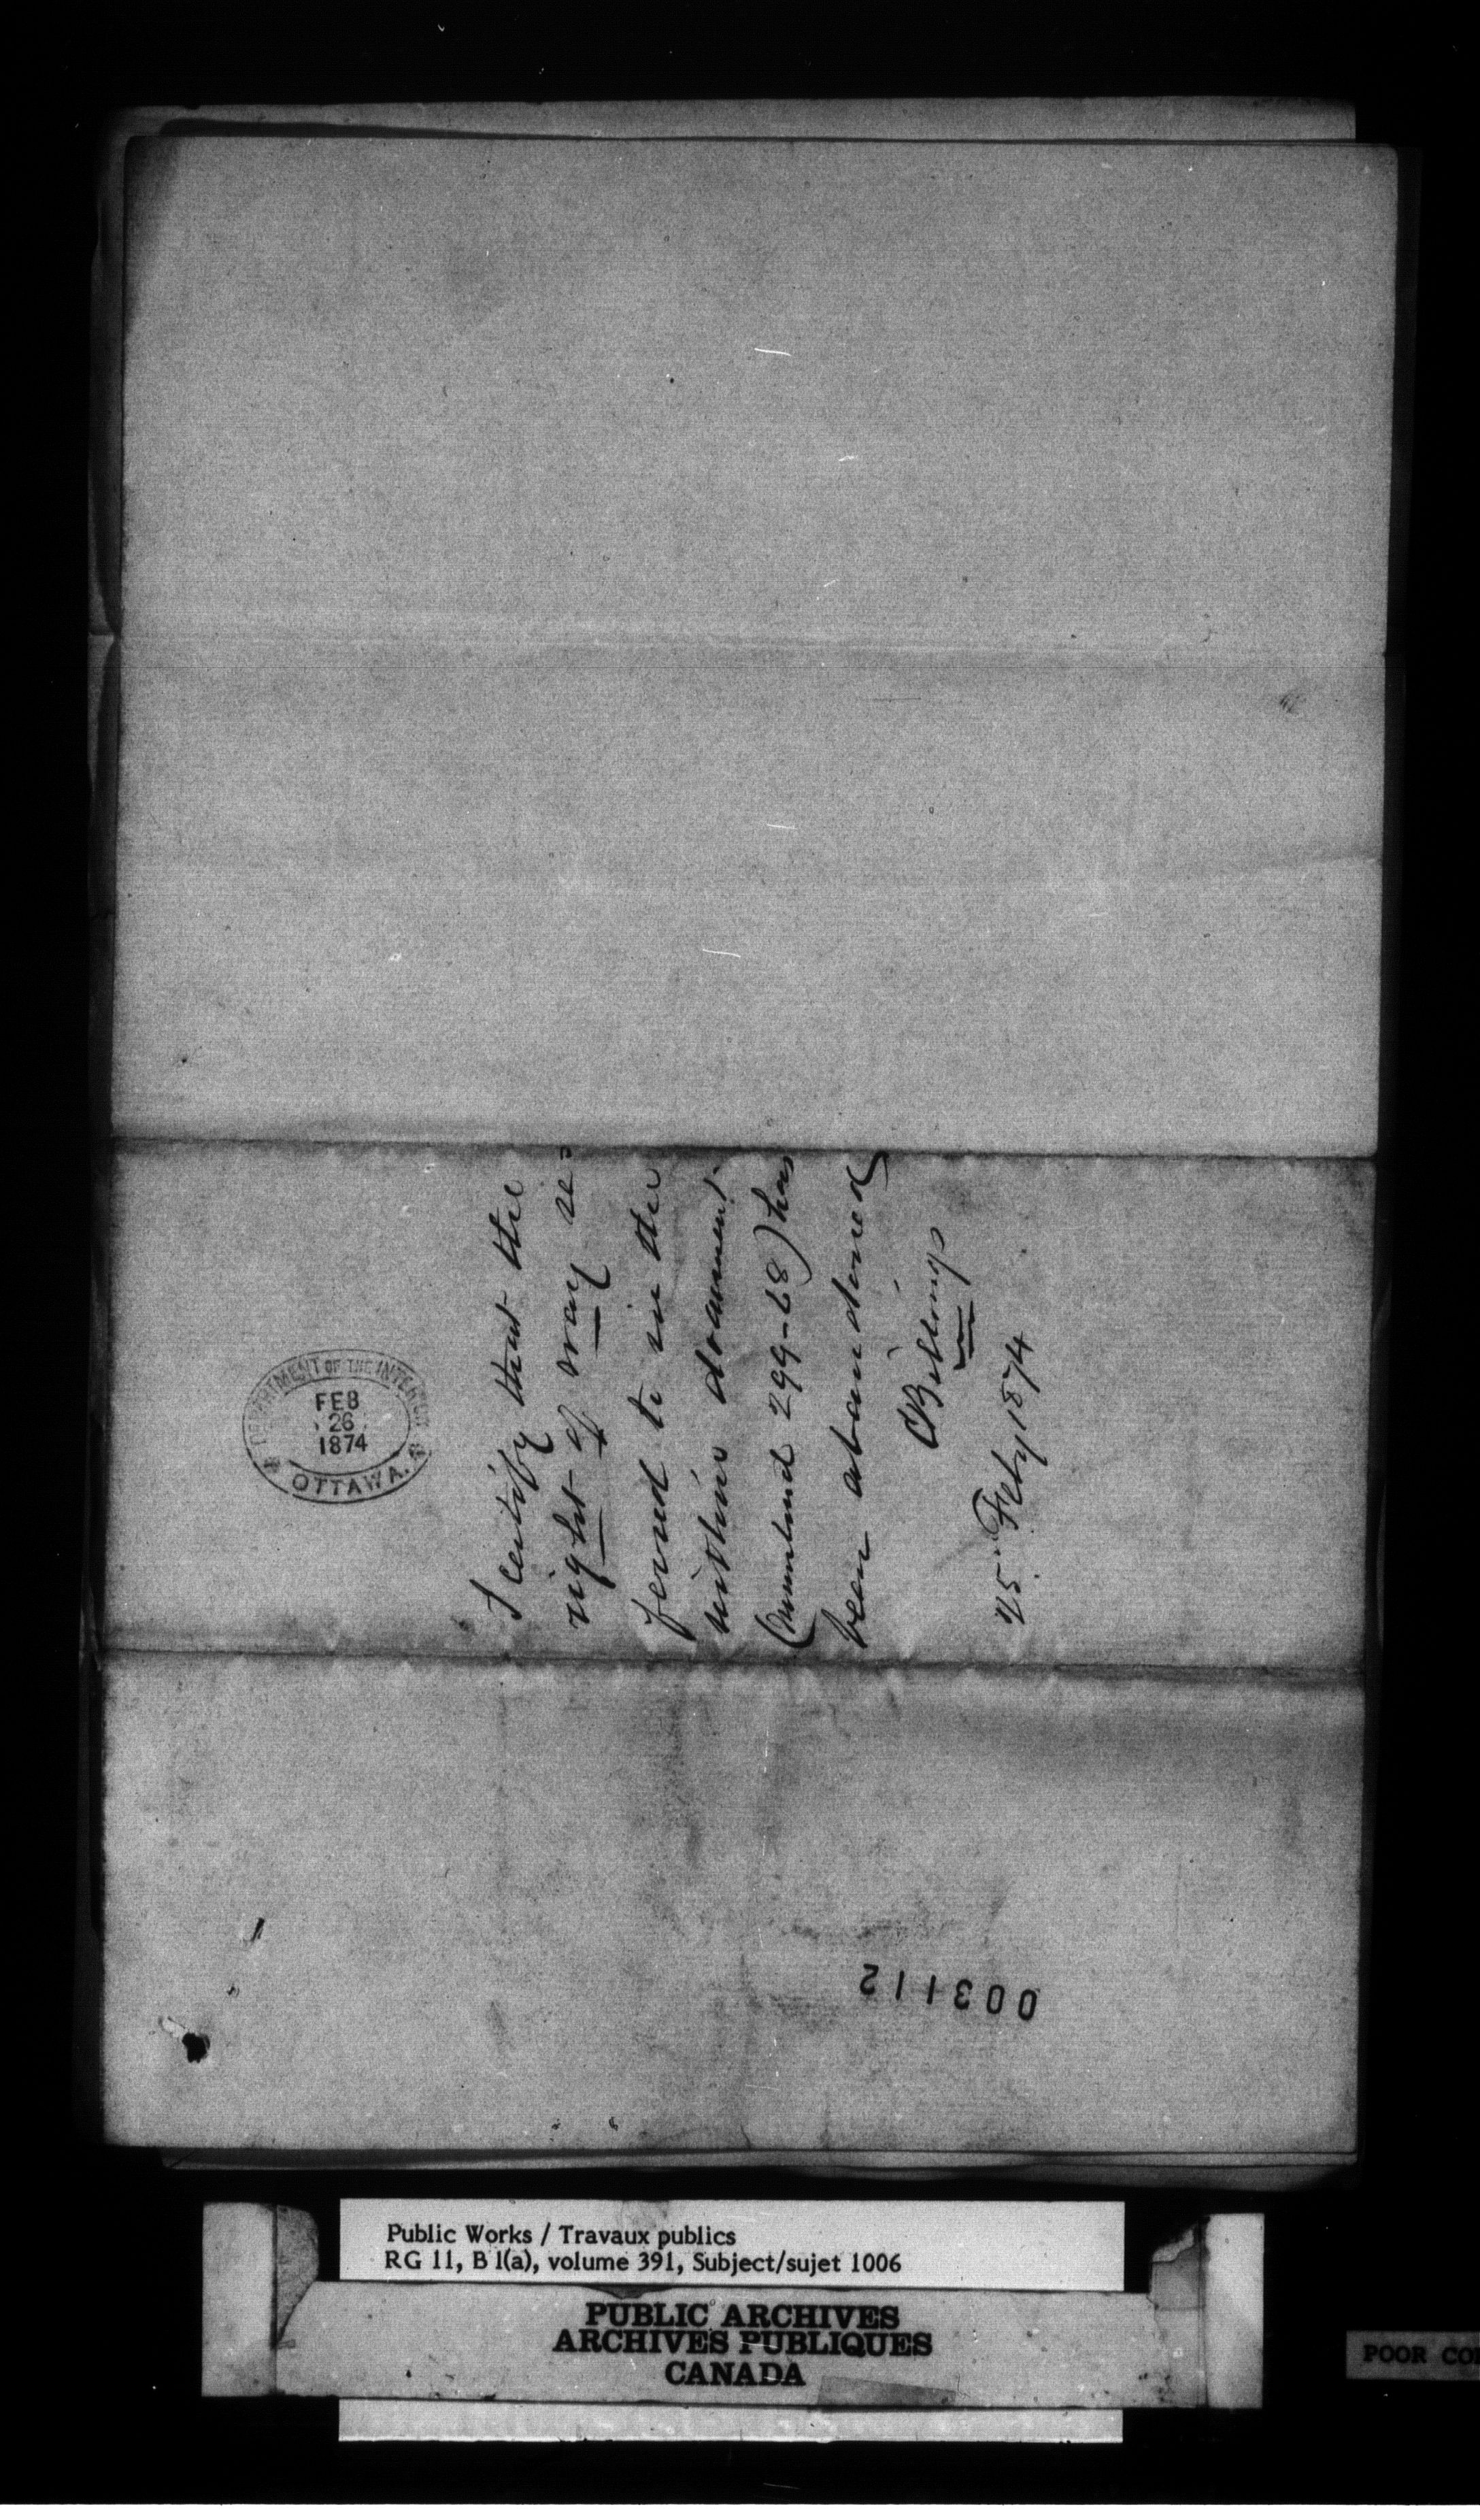 DEPARTMENT OF THE INTERIOR
FEB
26
1874
OTTAWA.
I certify that the
right of way re=
ferred to in the
within document
(numbered 299-68) has
been abandoned
Billings
25. Feby 1874
003112
Public Works / Travaux publics
RG 11, B 1(a), volume 391, Subject/sujet 1006
PUBLIC ARCHIVES
ARCHIVES PUBLIQUES
CANADA
POOR CO